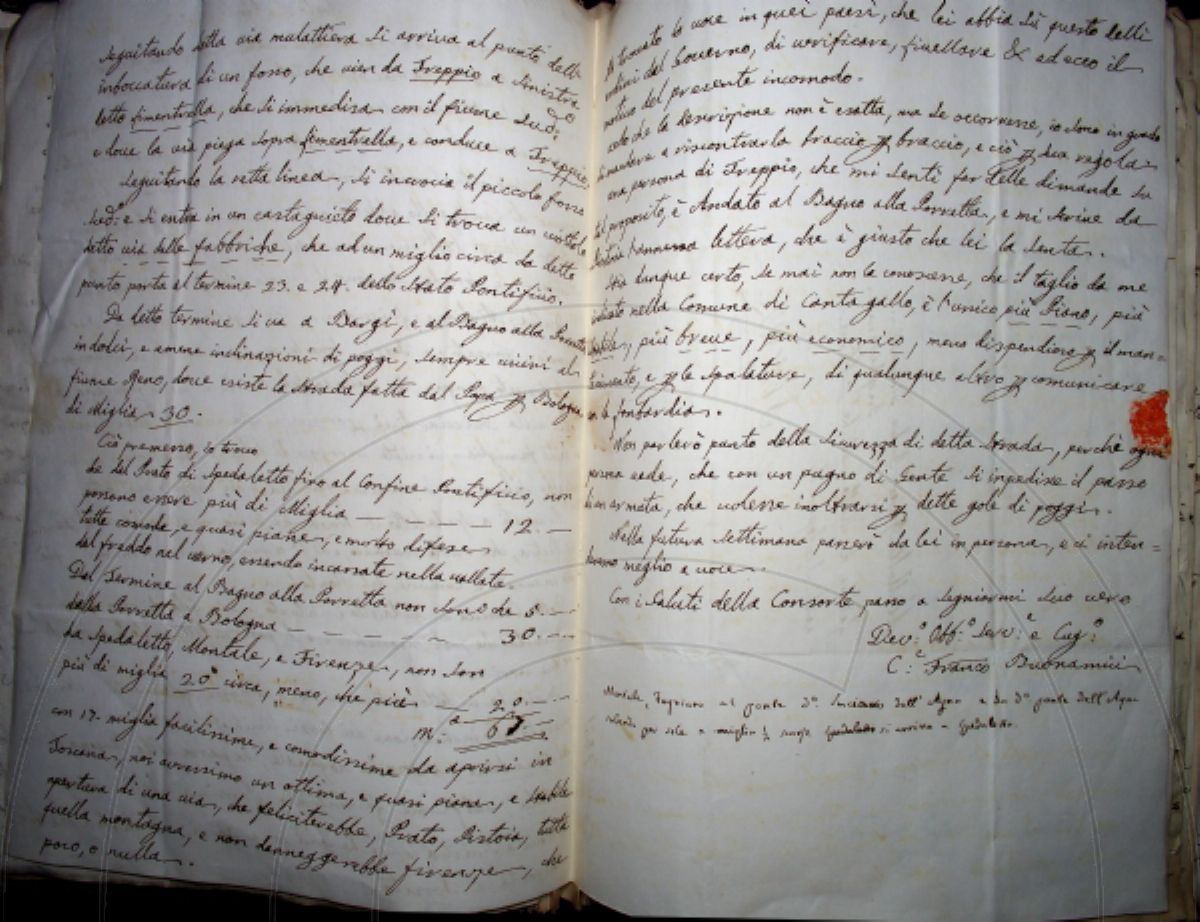 Seguitando detta via mulattiera si arriva al punto dell'
inboccatura di un fosso, che vien da Treppio a sinistra
detto fimentrella, che si immedisa con il fiume sud:º
e dove la via piega sopra fimentrella, e conduce a Treppio
Seguitando la retta linea, si incrocia il piccolo fosso
sud:º e si entra in un castagnieto dove si trova un viottolo
detto via delle fabbriche, che ad un miglio circa da detto
punto porta al termine 23. e 24. dello Stato Pontificio.
Da detto termine si va a Bargi, e al Bagno alla Porretta
in dolci, e amene inclinazioni di poggi, sempre vicini al
fiume Reno, dove esiste la strada fatta dal Papa p Bologna
di Miglia 30.
Ciò premesso, io trovo
che dal Ponte di Spedaletto fino al Confine Pontificio, non
possano essere più di Miglia — — — — 12. —
tutte comode, e quasi piane, e molto difese
dal freddo nel verno, essendo incassate nella vallata.
Dal Termine al Bagno alla Porretta non sono che 5. —
dalla Porretta a Bologna — — — — 30. —
da Spedaletto, Montale, e Firenze, non son
più di miglia 20 circa, meno, che più — 20. —
M:ª 67
con 17. miglia facilissime, e comodissime da aprirsi in
Toscana, noi avressimo un ottima, e quasi piana, e stabile
apertura di una via, che feliciterebbe, Prato, Pistoia, tutta
quella montagna, e non danneggerebbe firenze, che
poco, o nulla.
Ho trovato la voce in quei paesi, che lei abbia su questo delli
ordini del Governo, di verificare, livellare & ed ecco il
motivo del presente incomodo.
Credo che la descrizione non è esatta, ma se occorresse, io sono in grado
di mandare a riscontrarla braccio p braccio, e ciò p sua regola
una persona di Treppio, che mi sentì far delle dimande su
tal proposito, è Andato al Bagno alla Porretta, e mi scrive da
l'annessa lettera, che è giusto che lei la senta.
Stia dunque certo, se mai non la conoscesse, che il taglio da me
indicato nella Comune di Cantagallo, è l'unico più Piano, più
stabile, più breve, più economico, meno dispendioso p il man=
tenimento, e p le spalature, di qualunque altro p comunicare
con la Lombardia.
Non parlerò punto della sicurezza di detta strada, perchè ogni
persona vede, che con un pugno di Gente si inpedisce il passo
di un armata, che volesse inoltrarsi p dette gole di poggi.
Nella futura settimana passerò da lei in persona, e ci inten=
deremo meglio a voce.
Con i saluti della Consorte, passo a segniarmi suo vero
Dev:º Obb:º Serv:ᵉ e Cug:º
C:ᵉ Franco Buonamici
Montale, al ponte dell' Agna e da dº ponte dell'Agna
per sole miglia si arriva a Spedaletto.